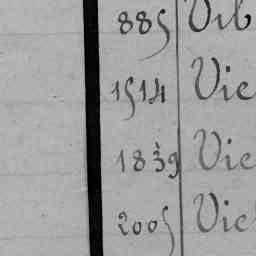 885 Vib
1514 Vie
1839 Vie
2005 Vie